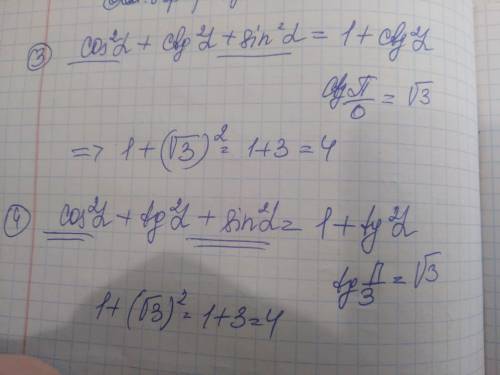 ③ cos²α + ctg²α + sin²α = 1 + ctg²α
ctg π/6 = √3
=> 1 + (√3)² = 1+3 = 4
④ cos²α + tg²α + sin²α = 1 + tg²α
tg π/3 = √3
1 + (√3)² = 1+3 = 4